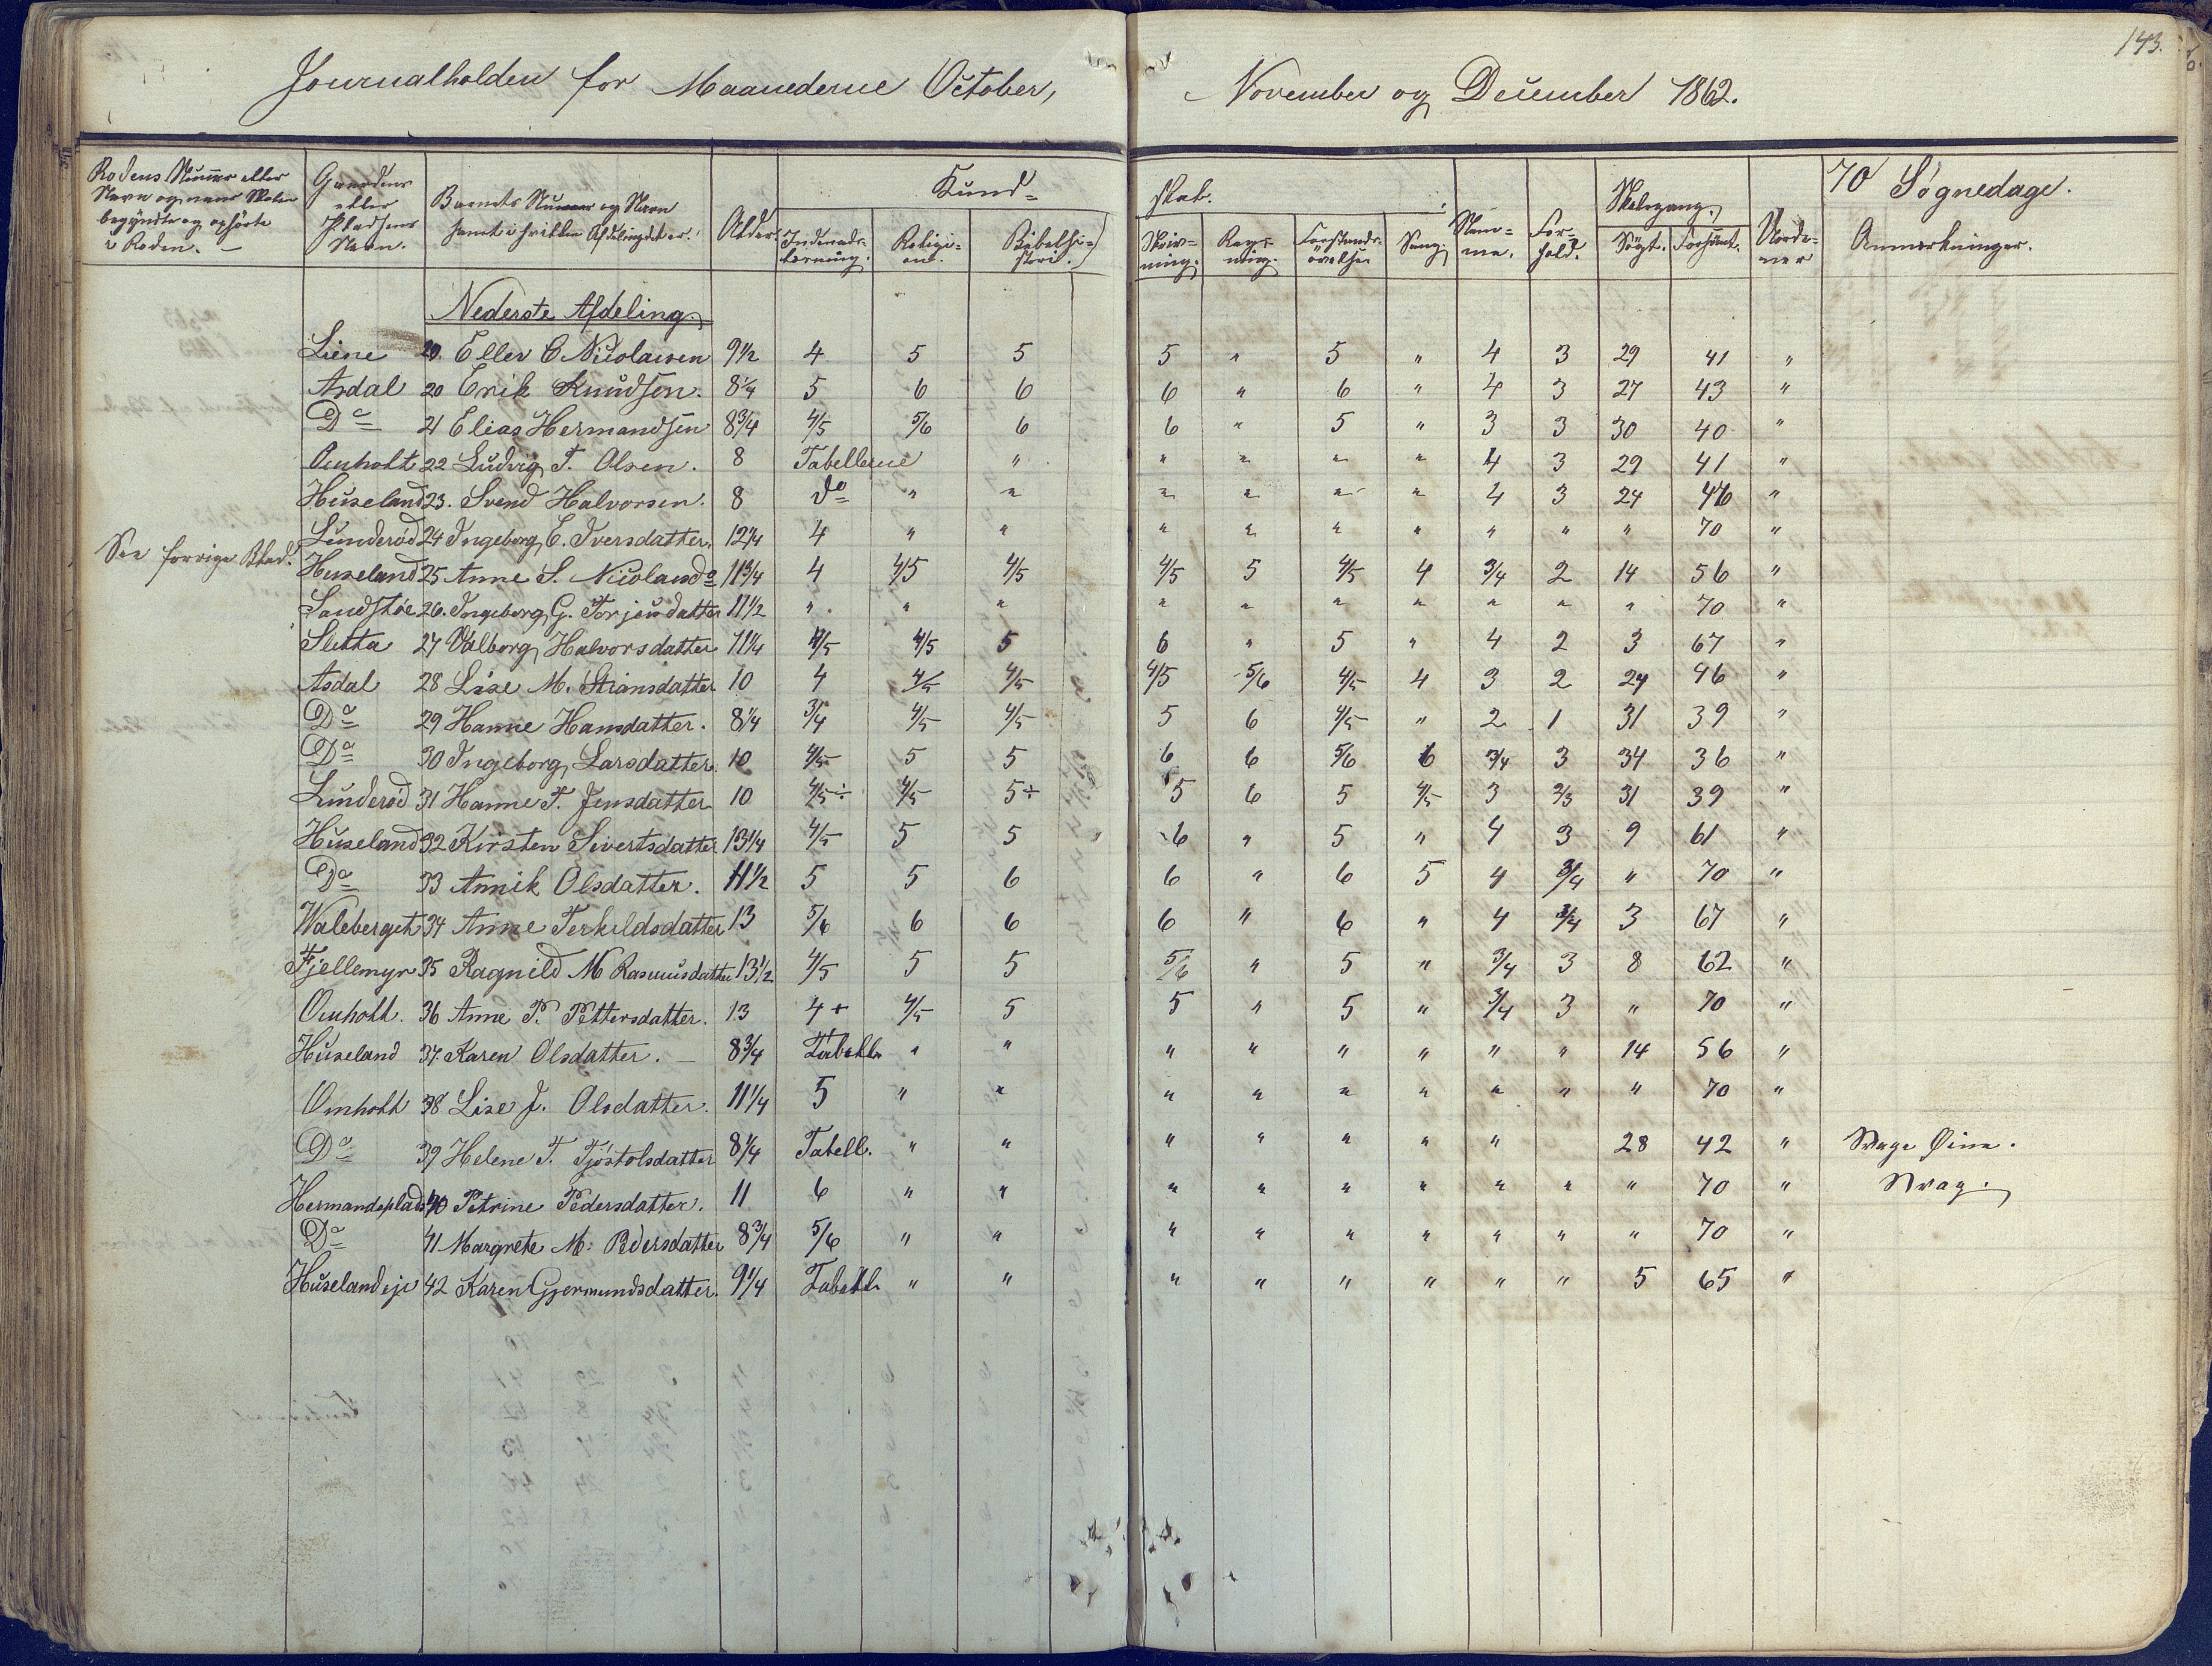 143.
Journalholden for Maanederne October, November og December 1862.
Rodens Nummer eller Navn og naar Skolen begyndte og ophörte i Roden. —
Gaardens eller Pladsens Navn.
Barnets Nummer og Navn samt i hvilken Afdeling det er.
Alder.
Kund= skab.
Indenads- læsning.
Religi- on.
Bibelhi- storie.
Skriv- ning.
Regn- ning.
Forstands- övelser
Sang.
Nem= me.
For= hold.
Skolegang.
Sögt.
Forsömt.
Uorde- ner
70 Søgnedage.
Anmerkninger.
Nederste Afdeling.
Liene 19. Ellev C Nicolaisen 9 1/2 4 5 5 5 " 5 " 4 3 29 41 "
Asdal 20 Erik Knudsen. 8 1/4 5 6 6 6 " 6 " 4 3 27 43 "
Do 21 Elias Hermandsen 8 3/4 4/5 5/6 6 6 " 5 " 3 3 30 40 "
Omholt 22 Ludvig T. Olsen. 8 Tabellerne " " " " " 4 3 29 41 "
Huseland 23. Svend Halvorsen. 8 do " " " " " " 4 3 24 46 "
Lunderød 24 Ingeborg E. Iversdatter. 12 1/4 4 " " " " " " " " " 70 "
See forrige Blad.
Huseland 25 Anne S. Nicolausd. 11 3/4 4 4/5 4/5 4/5 5 4/5 4 3/4 2 14 56 "
Sandstøe 26. Ingeborg G. Torjeusdatter 11 1/2 " " " " " " " " " " 70 "
Sletta 27 Valborg Halvorsdatter 11 1/4 4/5 4/5 5 6 " 5 " 4 2 3 67 "
Asdal 28 Lise M. Stiansdatter 10 4 4/5 4/5 4/5 5/6 4/5 4 3 2 24 46 "
Do 29 Hanne Hansdatter. 8 1/4 3/4 4/5 4/5 5 6 4/5 " 2 1 31 39 "
Do 30 Ingeborg Larsdatter. 10 4/5 5 5 6 6 5/6 6 3/4 3 34 36 "
Lunderød 31 Hanne T. Jensdatter 10 4/5÷ 4/5 5÷ 5 6 5 4/5 3 2/3 31 39 "
Huseland 32 Kirsten Sivertsdatter 13 1/4 4/5 5 5 6 " 5 " 4 3 9 61 "
Do 33 Annik Olsdatter. 11 1/2 5 5 6 6 " 6 5 4 3/4 " 70 "
Waleberget 34 Anne Terkildsdatter 13 5/6 6 6 6 " 6 " 4 3/4 3 67 "
Fjellemyr 35 Ragnild M Rasmusdatter 13 1/2 4/5 5 5 5/6 " 5 " 3/4 3 8 62 "
Omholt. 36 Anne P. Pettersdatter. 13 4+ 4/5 5 5 " 5 " 3/4 3 " 70 "
Huseland 37. Karen Olsdatter. — 8 3/4 Tabell. " " " " " " " " 14 56 "
Omholt 38 Lise J. Olsdatter. 11 1/4 5 " " " " " " " " " 70 "
Do 39 Helene T. Tjöstolsdatter 8 1/4 Tabell. " " " " " " " 28 42 " Svage Øine.
Hermandsplads 40 Petrine Pedersdatter. 11 6 " " " " " " " " " 70 " Svag.
Do 41 Margrete M. Pedersdatter 8 3/4 5/6 " " " " " " " " " 70 "
Huselandeje 42 Karen Gjermundsdatter. 9 1/4 Tabell. " " " " " " " " 5 65 "